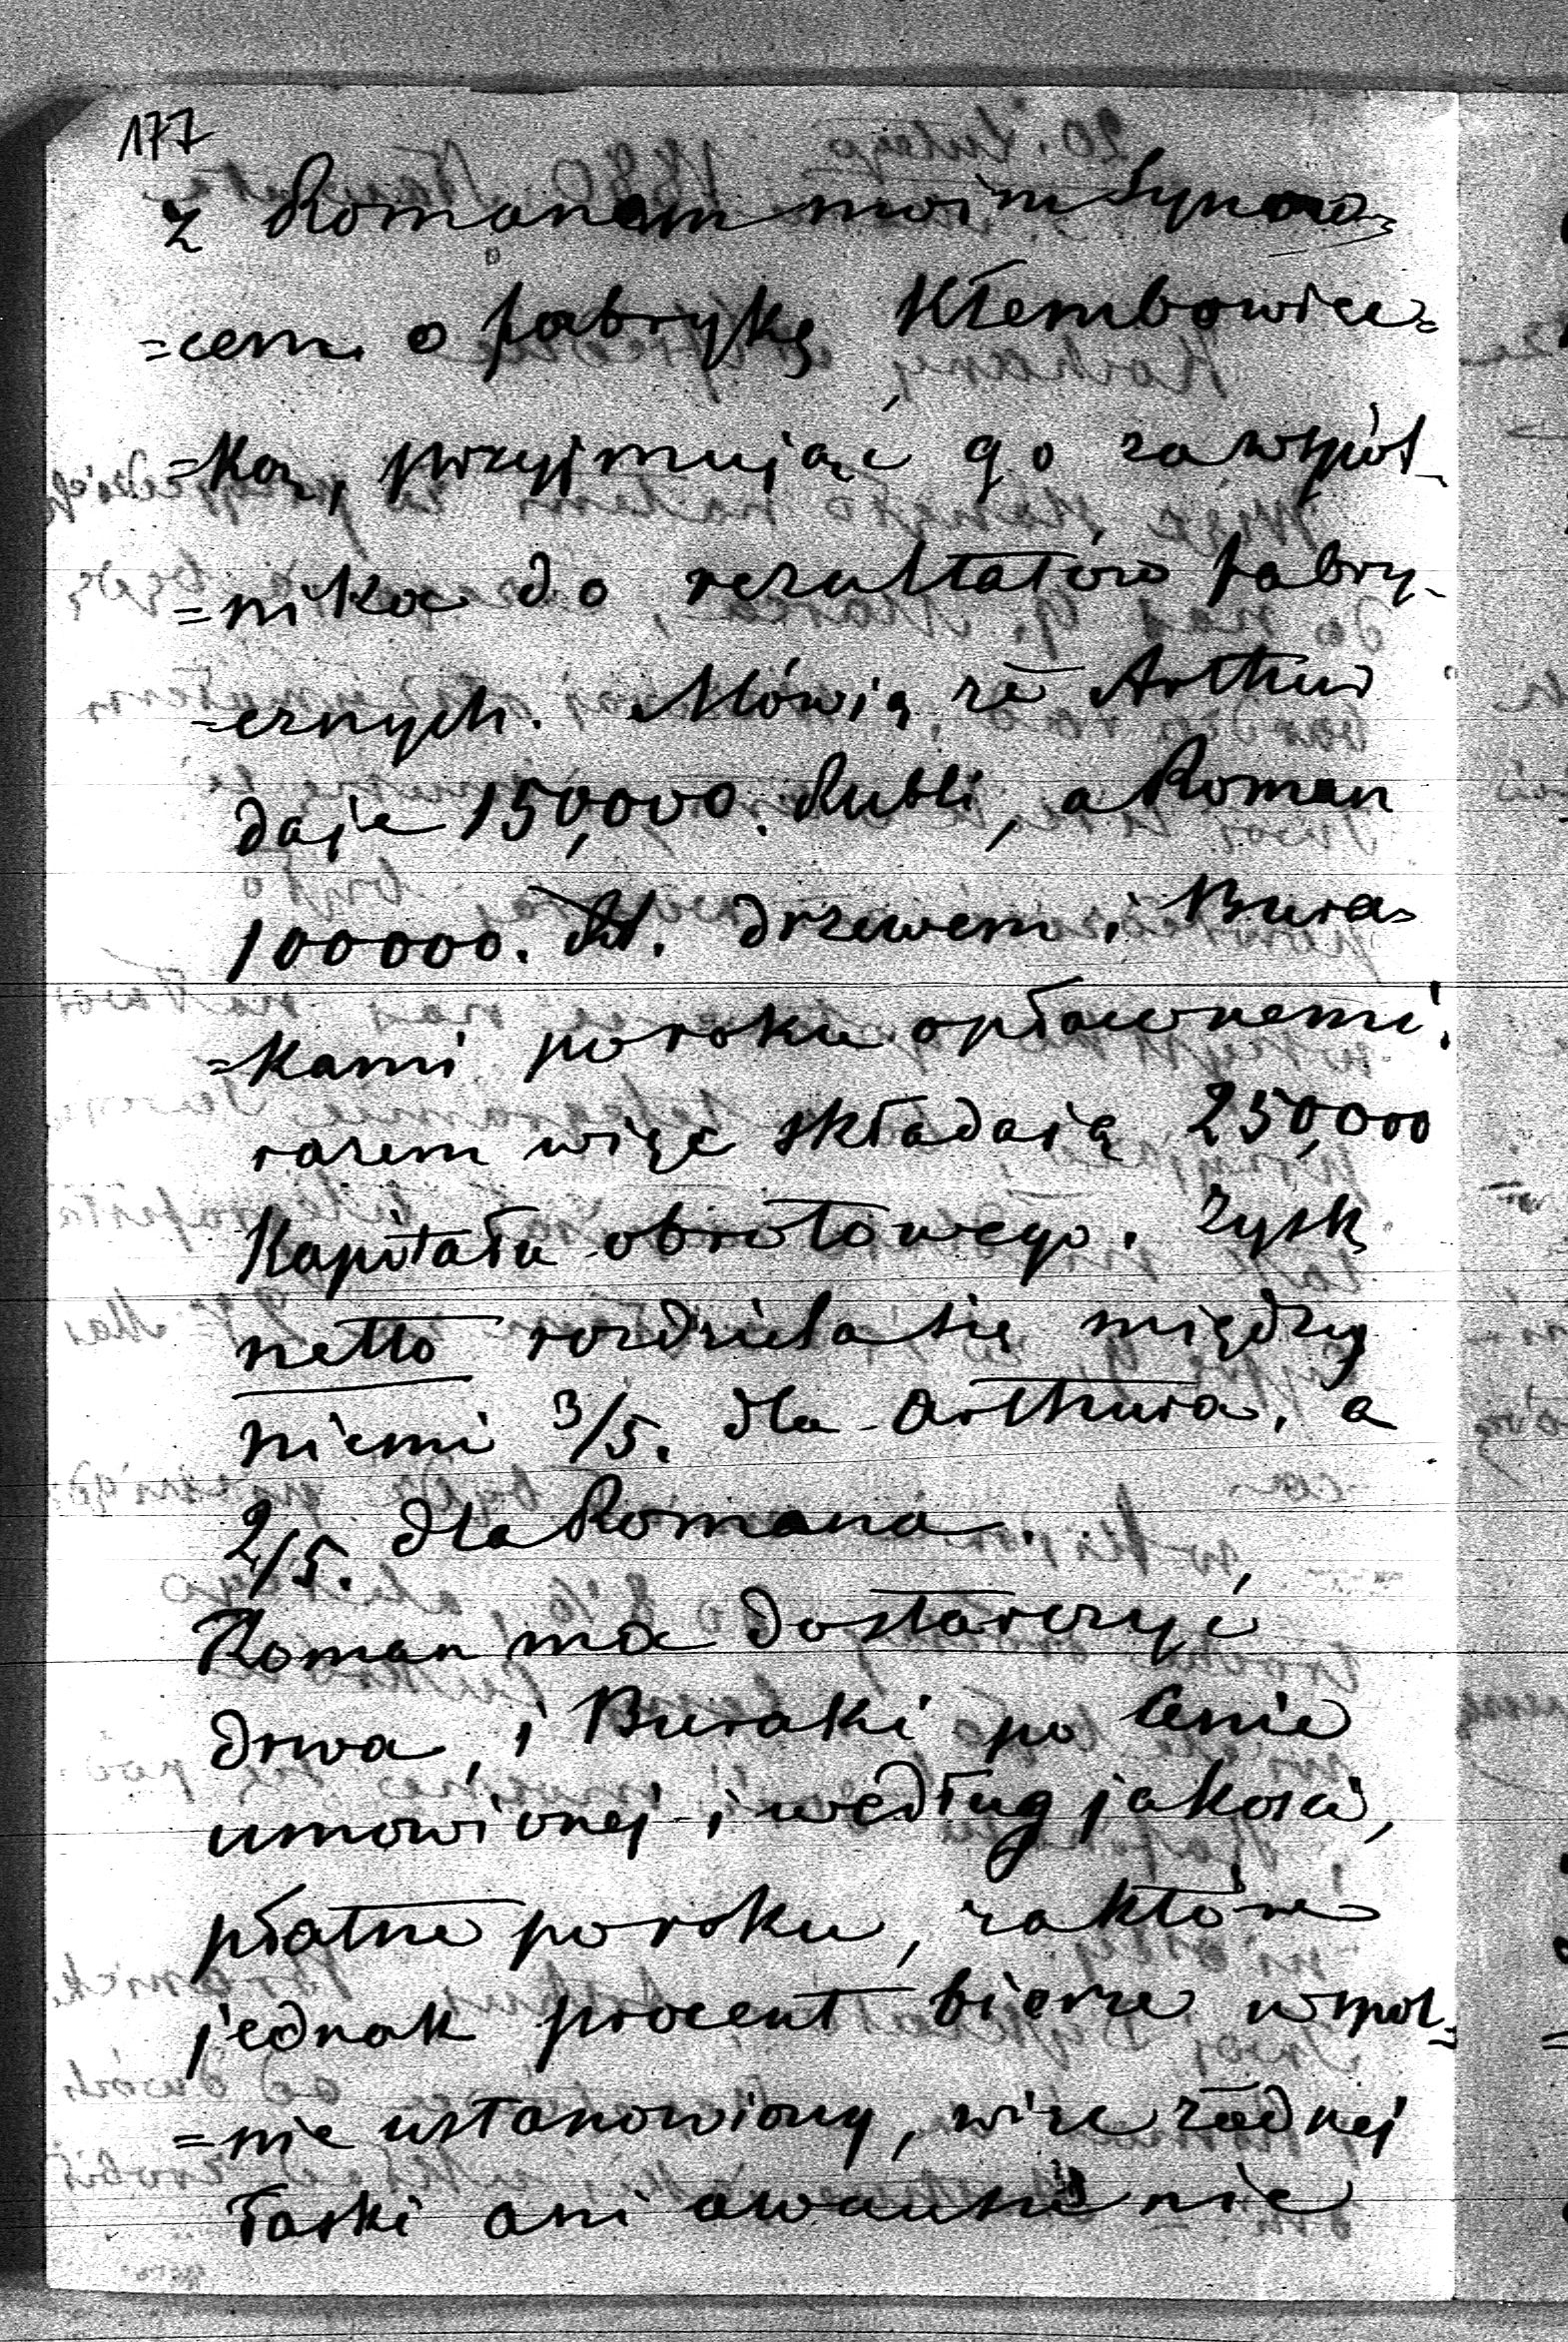 177
z Romanem moim Synow=
=cem o fabrykę Kłembowiec=
=ką, przyjmując go za współ_
=nika do rezultatów fabry_
=cznych. Mówią że Arthur
daje 150,000. Rubli, a Roman
100000. drzewem i Bura=
=kami po roku opłacnemi.
razem więc składają 250,000
Kapitału obrotowego. Zysk
netto rozdziela się między
niemi 3/5. dla Arthura, a
2/5. dla Romana.
Roman ma dostarczyć
drwa, i Buraki po Cenie
umówionej i według jakości,
płatne po roku, za które
jednak procent bierze wspól=
=nie ustanowiony, więc żadnej
łaski ani awansu nie